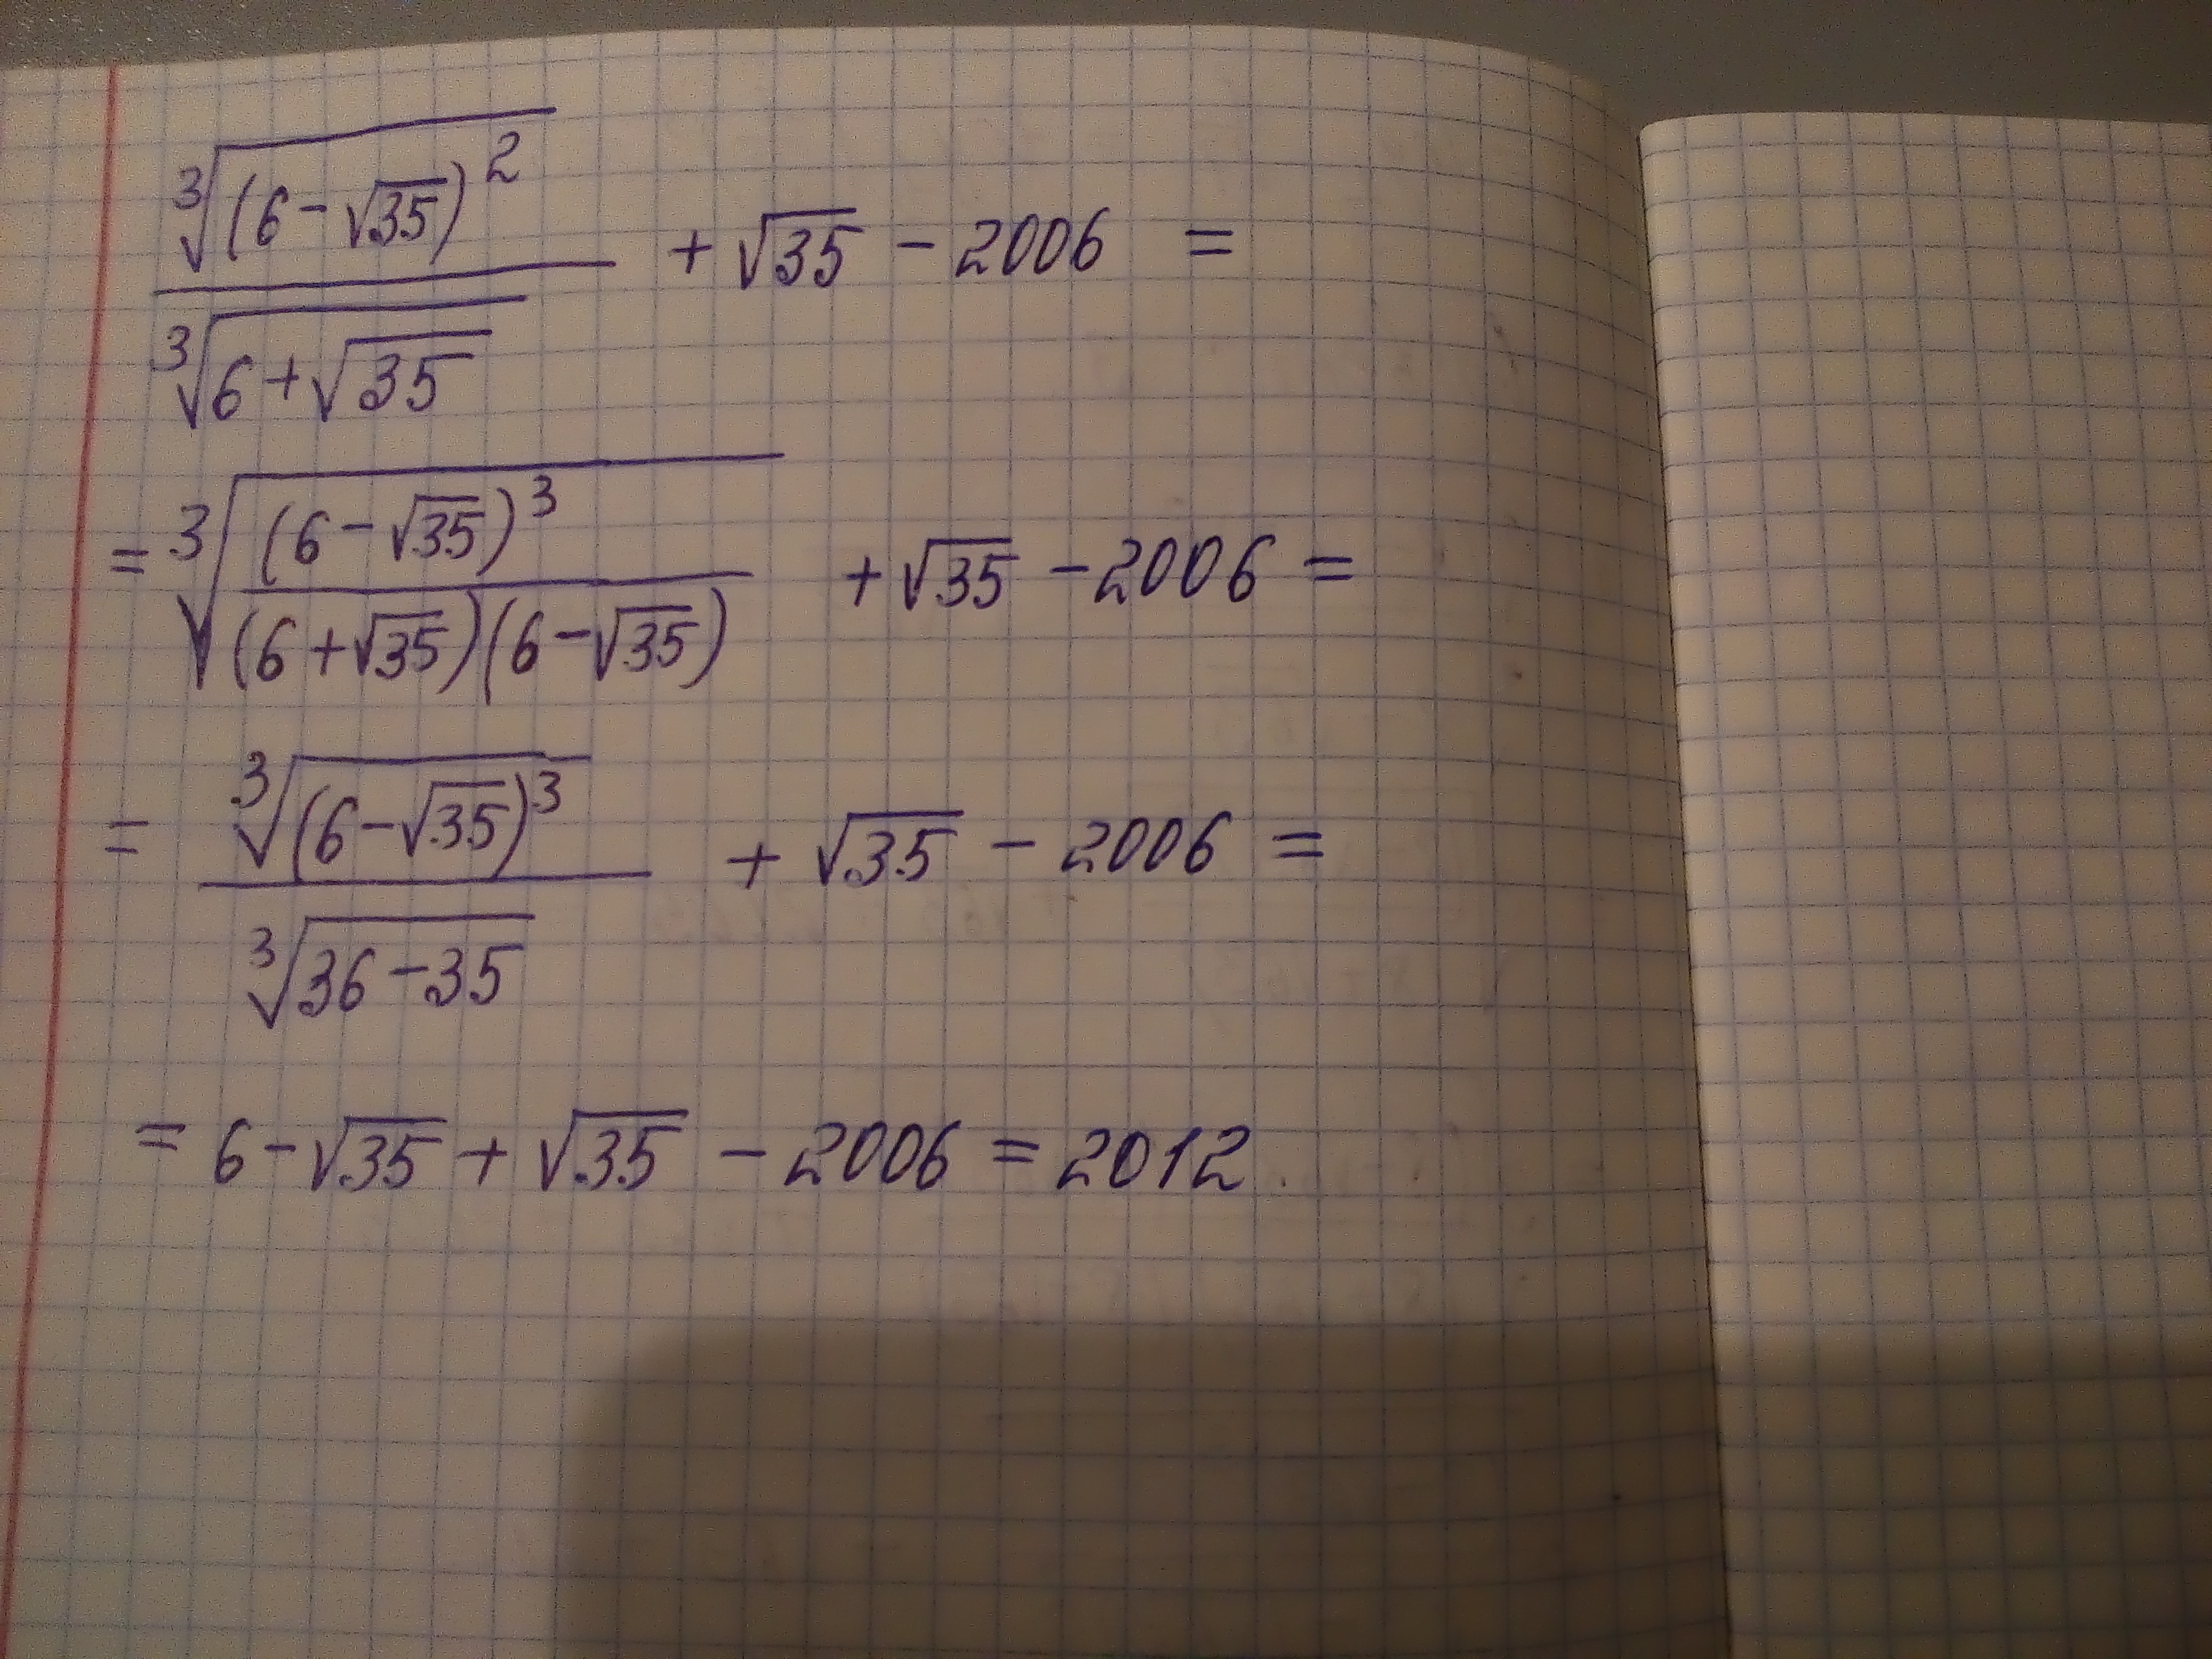 ∛((6-√35)²) / ∛(6+√35) + √35 - 2006 =
= ∛((6-√35)³ / ((6+√35)(6-√35))) + √35 - 2006 =
= ∛((6-√35)³) / ∛(36-35) + √35 - 2006 =
= 6-√35 + √35 - 2006 = 2012.